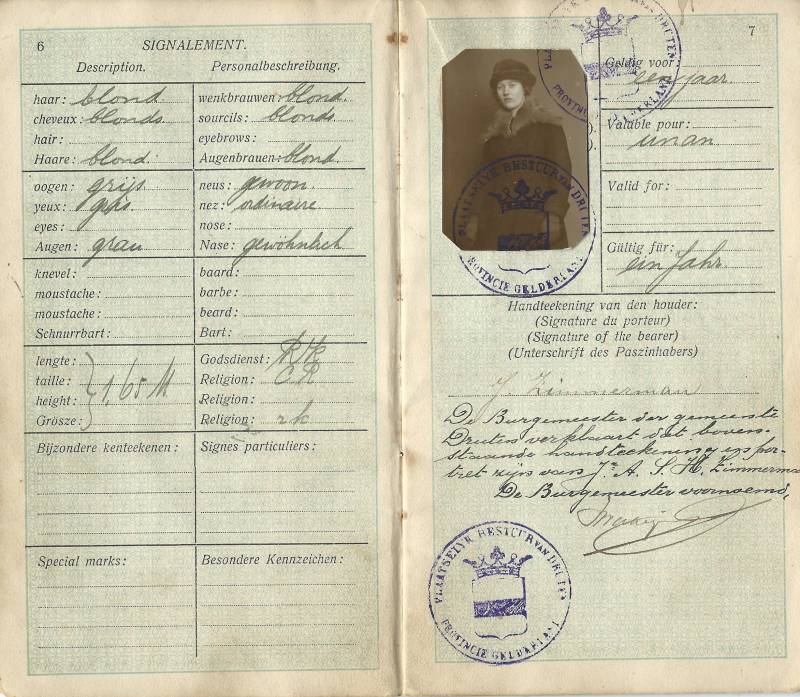 6
SIGNALEMENT.
Description. Personalbeschreibung.
haar: blond
cheveux: blonds
hair:
Haare: blond.
wenkbrauwen: blond.
sourcils: blonds
eyebrows:
Augenbrauen: blond.
oogen: grijs
yeux: gris
eyes:
Augen: grau
neus: gewoon.
nez: ordinaire
nose:
Nase: gewöhnlich
knevel:
moustache:
moustache:
Schnurrbart:
baard:
barbe:
beard:
Bart:
lengte:
taille:
height:
Grösze:
1,65 M
Godsdienst: RK
Religion: CR
Religion:
Religion: rk
Bijzondere kenteekenen:
Signes particuliers:
Special marks:
Besondere Kennzeichen:
7
Geldig voor
een jaar.
Valable pour:
un an
Valid for:
Gültig für:
ein Jahr
PLAATSELYK BESTUUR VAN DRUTEN
PROVINCIE GELDERLAND
PLAATSELYK BESTUUR VAN DRUTEN
PROVINCIE GELDERLAND
Handteekening van den houder:
(Signature du porteur)
(Signature of the bearer)
(Unterschrift des Paszinhabers)
J. Zimmerman
De Burgemeester der gemeente
Druten verklaart dat boven-
staande handteekening en por-
tret zijn van J. A. S. H. Zimmerman
De Burgemeester voornoemd,
PLAATSELYK BESTUUR VAN DRUTEN
PROVINCIE GELDERLAND